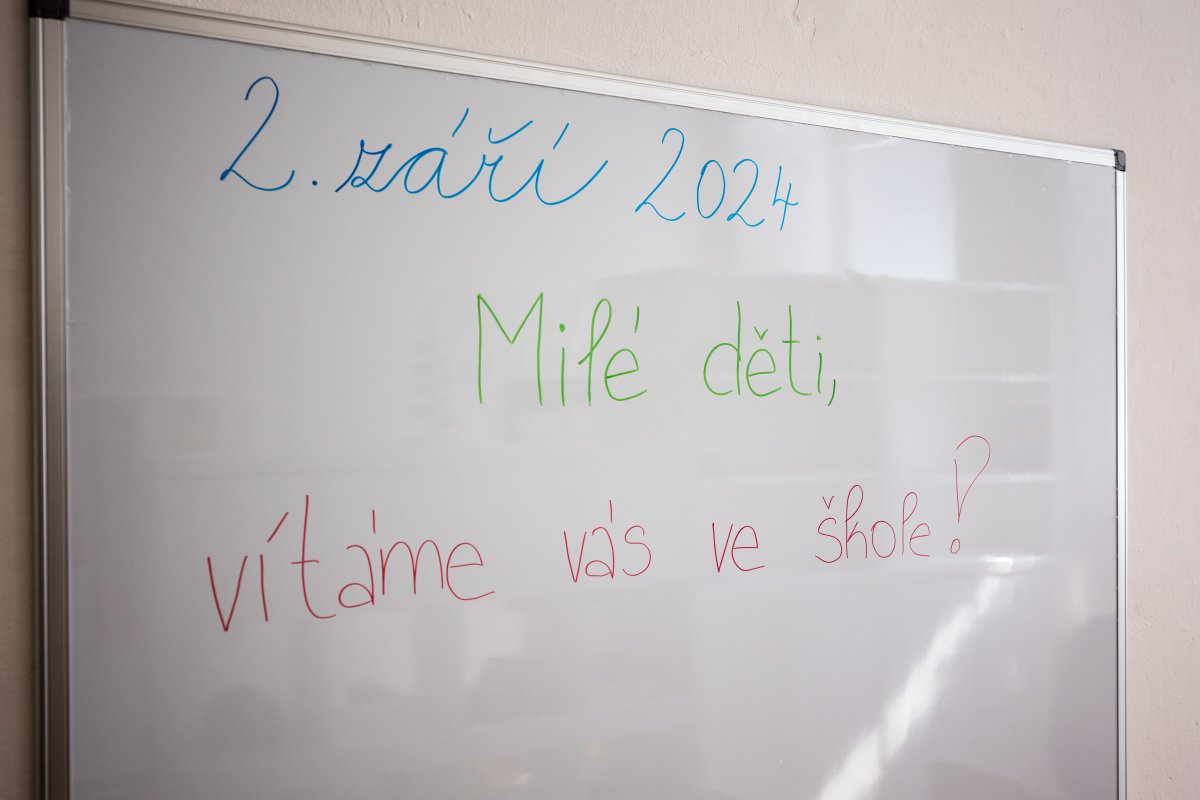 2. září 2024
Milé děti,
vítáme vás ve škole!